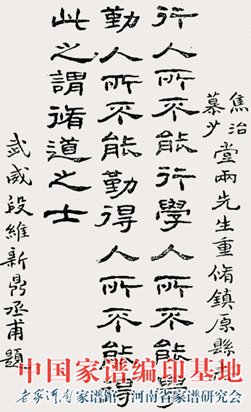 焦治
慕少
堂兩先生重脩鎮原縣志
行人所不能行學人所不能學
勤人所不能勤得人所不能得
此之謂脩道之士
武威段維新鼎丞甫題
中国家谱编印基地
老家河南家谱馆 河南省家谱研究会